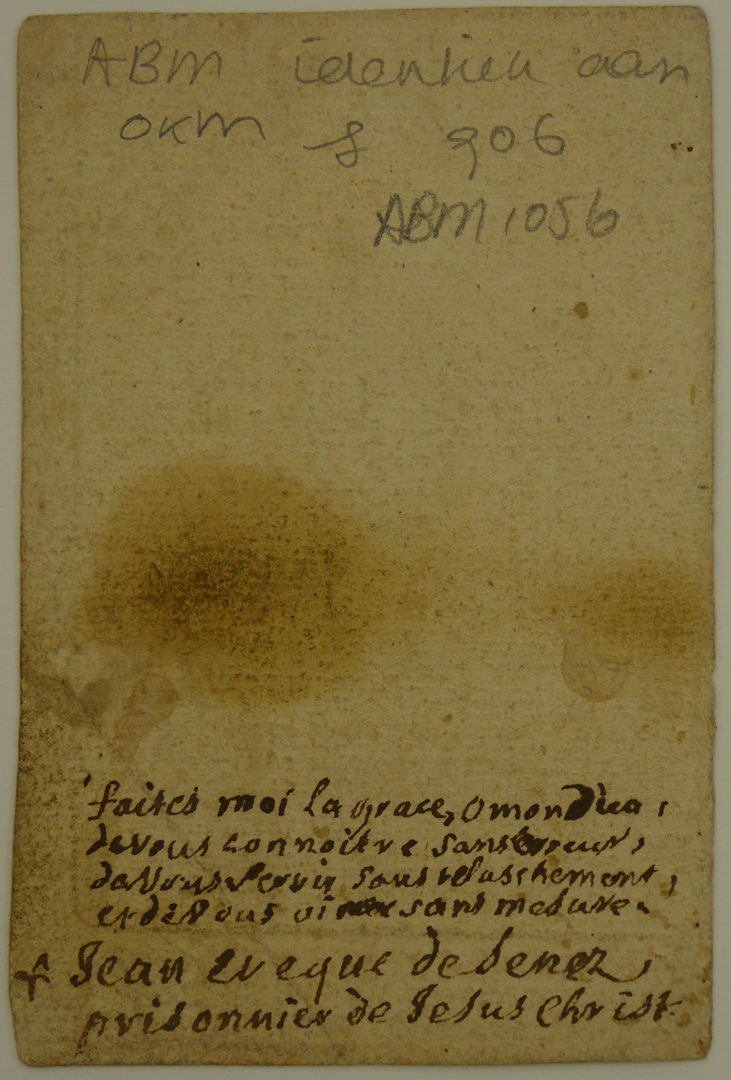 ABM identiek aan
OKM g 906
ABM 1056
faites moi la grace, o mon Dieu,
de vous connoitre sans erreur,
de vous servir sans relaschement,
et de vous sans mesure.
+ Jean eveque de Senez,
prisonnier de Jesus Christ